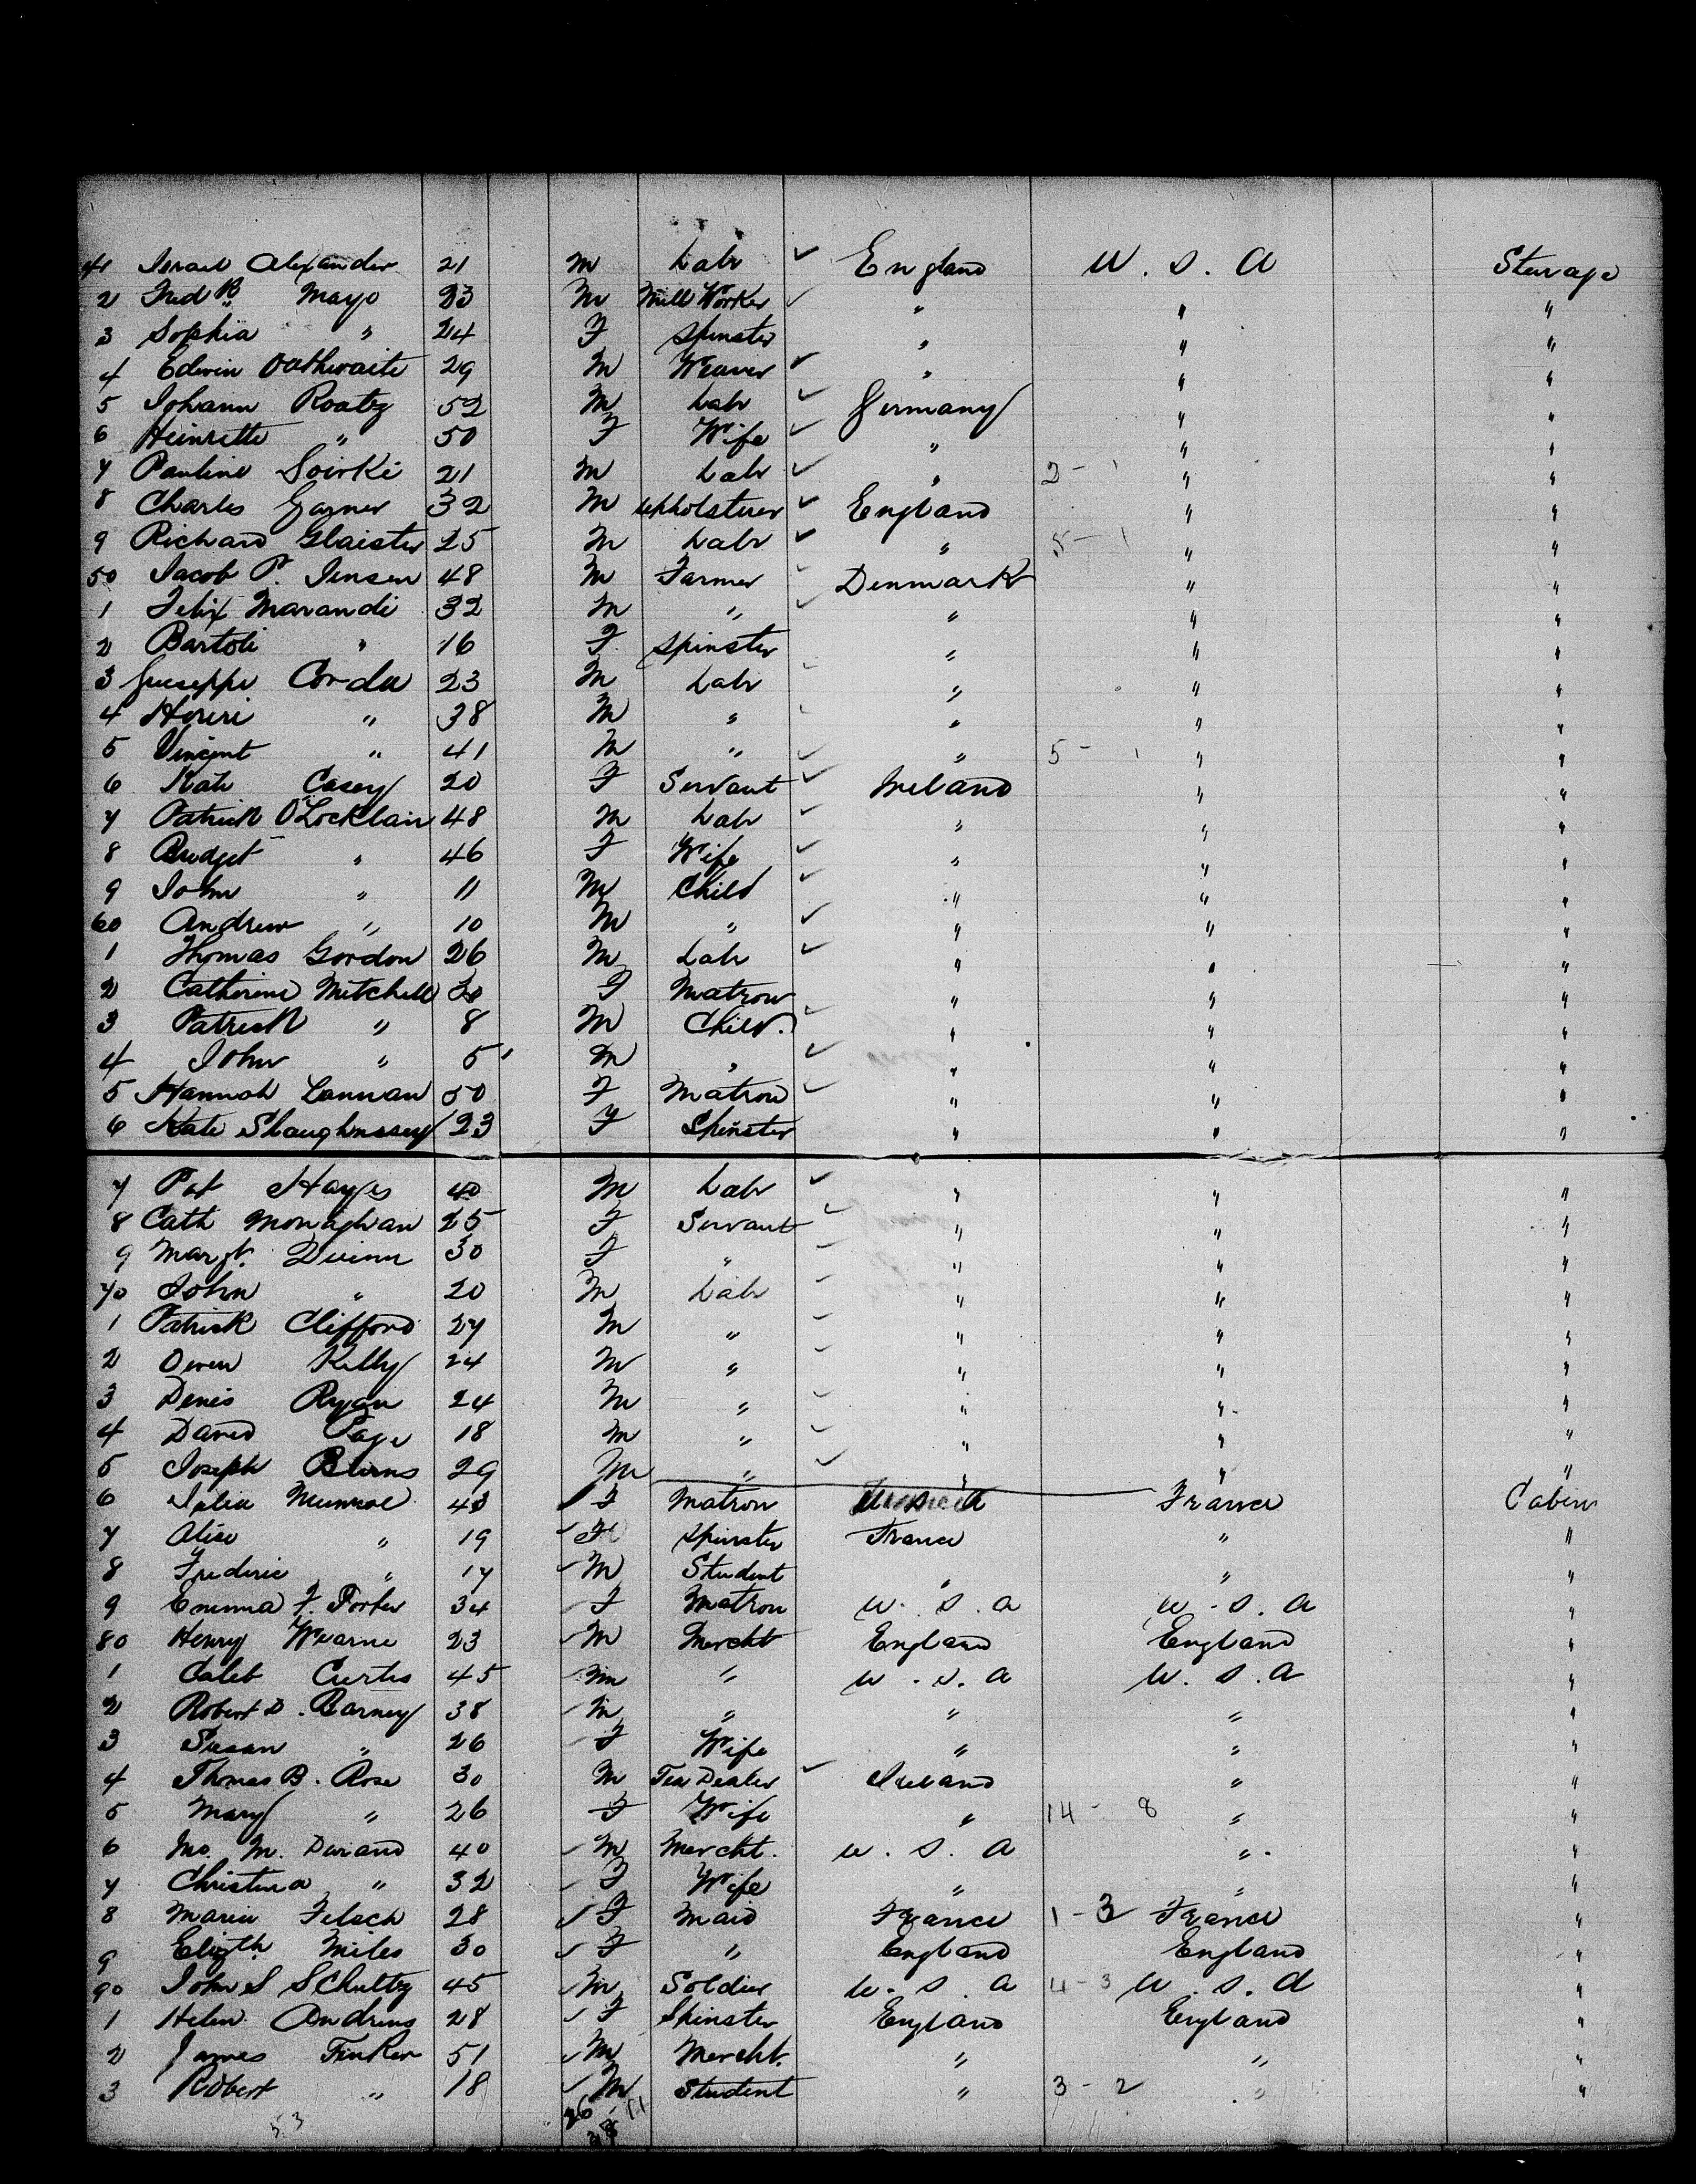 41 Israel Alexander 21 M Labr ✓ England U.S.A Sterage
2 Fred B. Mayo 23 M Mill Worker ✓ " " "
3 Sophia " 24 F Spinster " " "
4 Edwin Outhwaite 29 M Weaver ✓ " " "
5 Johann Roatz 52 M Labr ✓ Germany " "
6 Heinrette " 50 F Wife ✓ " " "
7 Pauline Soirke 21 M Labr ✓ " 2 - 1 " "
8 Charles Garner 32 M Upholsterer ✓ England " "
9 Richard Glaister 25 M Labr ✓ " 5 - 1 " "
50 Jacob P. Jensen 48 M Farmer ✓ Denmark " "
1 Felix Marandi 32 M " ✓ " " "
2 Bartoli " 16 F Spinster " " "
3 Guiseppe Corda 23 M Labr ✓ " " "
4 " 38 M " ✓ " " "
5 Vincent " 41 M " ✓ " 5 - 1 " "
6 Kate Casey 20 F Servant ✓ Ireland " "
7 Patrick O'Locklain 48 M Labr ✓ " " "
8 Bridget " 46 F Wife ✓ " " "
9 John " 11 M Child ✓ " " "
60 Andrew " 10 M " ✓ " " "
1 Thomas Gordon 26 M Labr ✓ " " "
2 Catherine Mitchell 30 F Matron " " "
3 Patrick " 8 M Child. ✓ " " "
4 John " 5 M " ✓ " " "
5 Hannah Lannan 50 F Matron ✓ " " "
6 Kate Shaughnessy 23 F Spinster " " "
7 Pat Hayes 40 M Labr ✓ " " "
8 Cath Monaghan 25 F Servant ✓ " " "
9 Margt. Quinn 30 F " ✓ " " "
70 John " 20 M Labr ✓ " " "
1 Patrick Clifford 27 M " ✓ " " "
2 Owen Kelly 24 M " ✓ " " "
3 Denis Ryan 24 M " ✓ " " "
4 David Page 18 M " ✓ " " "
5 Joseph Burns 29 M " ✓ " " "
6 Julia Munroe 43 ✓ F Matron U.S.A France Cabin
7 Alice " 19 ✓ F Spinster France " "
8 Frederic " 17 ✓ M Student " " "
9 Emma F. Porter 34 ✓ F Matron U.S.A U.S.A "
80 Henry Wearne 23 ✓ M Mercht England England "
1 Caleb Curtis 45 ✓ M " U.S.A U.S.A "
2 Robert D. Barney 38 ✓ M " " " "
3 Susan " 26 ✓ F Wife " " "
4 Thomas B. Rose 30 M Tea Dealer ✓ Ireland " "
5 Mary " 26 F Wife " 14 - 8 " "
6 Jno. M. Durand 40 ✓ M Mercht. U.S.A " "
7 Christina " 32 ✓ F Wife " " "
8 Maria Felsch 28 ✓ F Maid France 1 - 3 France "
9 Elizth. Miles 30 ✓ F " England England "
90 John S Schultz 45 ✓ M Soldier U.S.A 4 - 3 U.S.A "
1 Helen Andrews 28 ✓ F Spinster England England "
2 James Tinker 51 ✓ M Mercht. " " "
3 Robert " 18 ✓ M Student " 3 - 2 " "
53 26 11